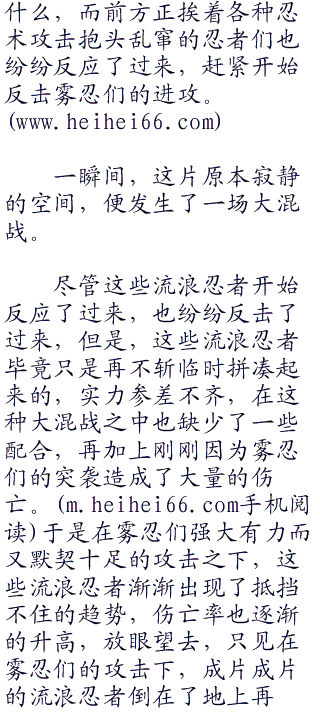 什么，而前方正挨着各种忍
术攻击抱头乱窜的忍者们也
纷纷反应了过来，赶紧开始
反击雾忍们的进攻。
(www.heihei66.com)
一瞬间，这片原本寂静
的空间，便发生了一场大混
战。
尽管这些流浪忍者开始
反应了过来，也纷纷反击了
过来，但是，这些流浪忍者
毕竟只是再不斩临时拼凑起
来的，实力参差不齐，在这
种大混战之中也缺少了一些
配合，再加上刚刚因为雾忍
们的突袭造成了大量的伤
亡。(m.heihei66.com手机阅
读)于是在雾忍们强大有力而
又默契十足的攻击之下，这
些流浪忍者渐渐出现了抵挡
不住的趋势，伤亡率也逐渐
的升高，放眼望去，只见在
雾忍们的攻击下，成片成片
的流浪忍者倒在了地上再